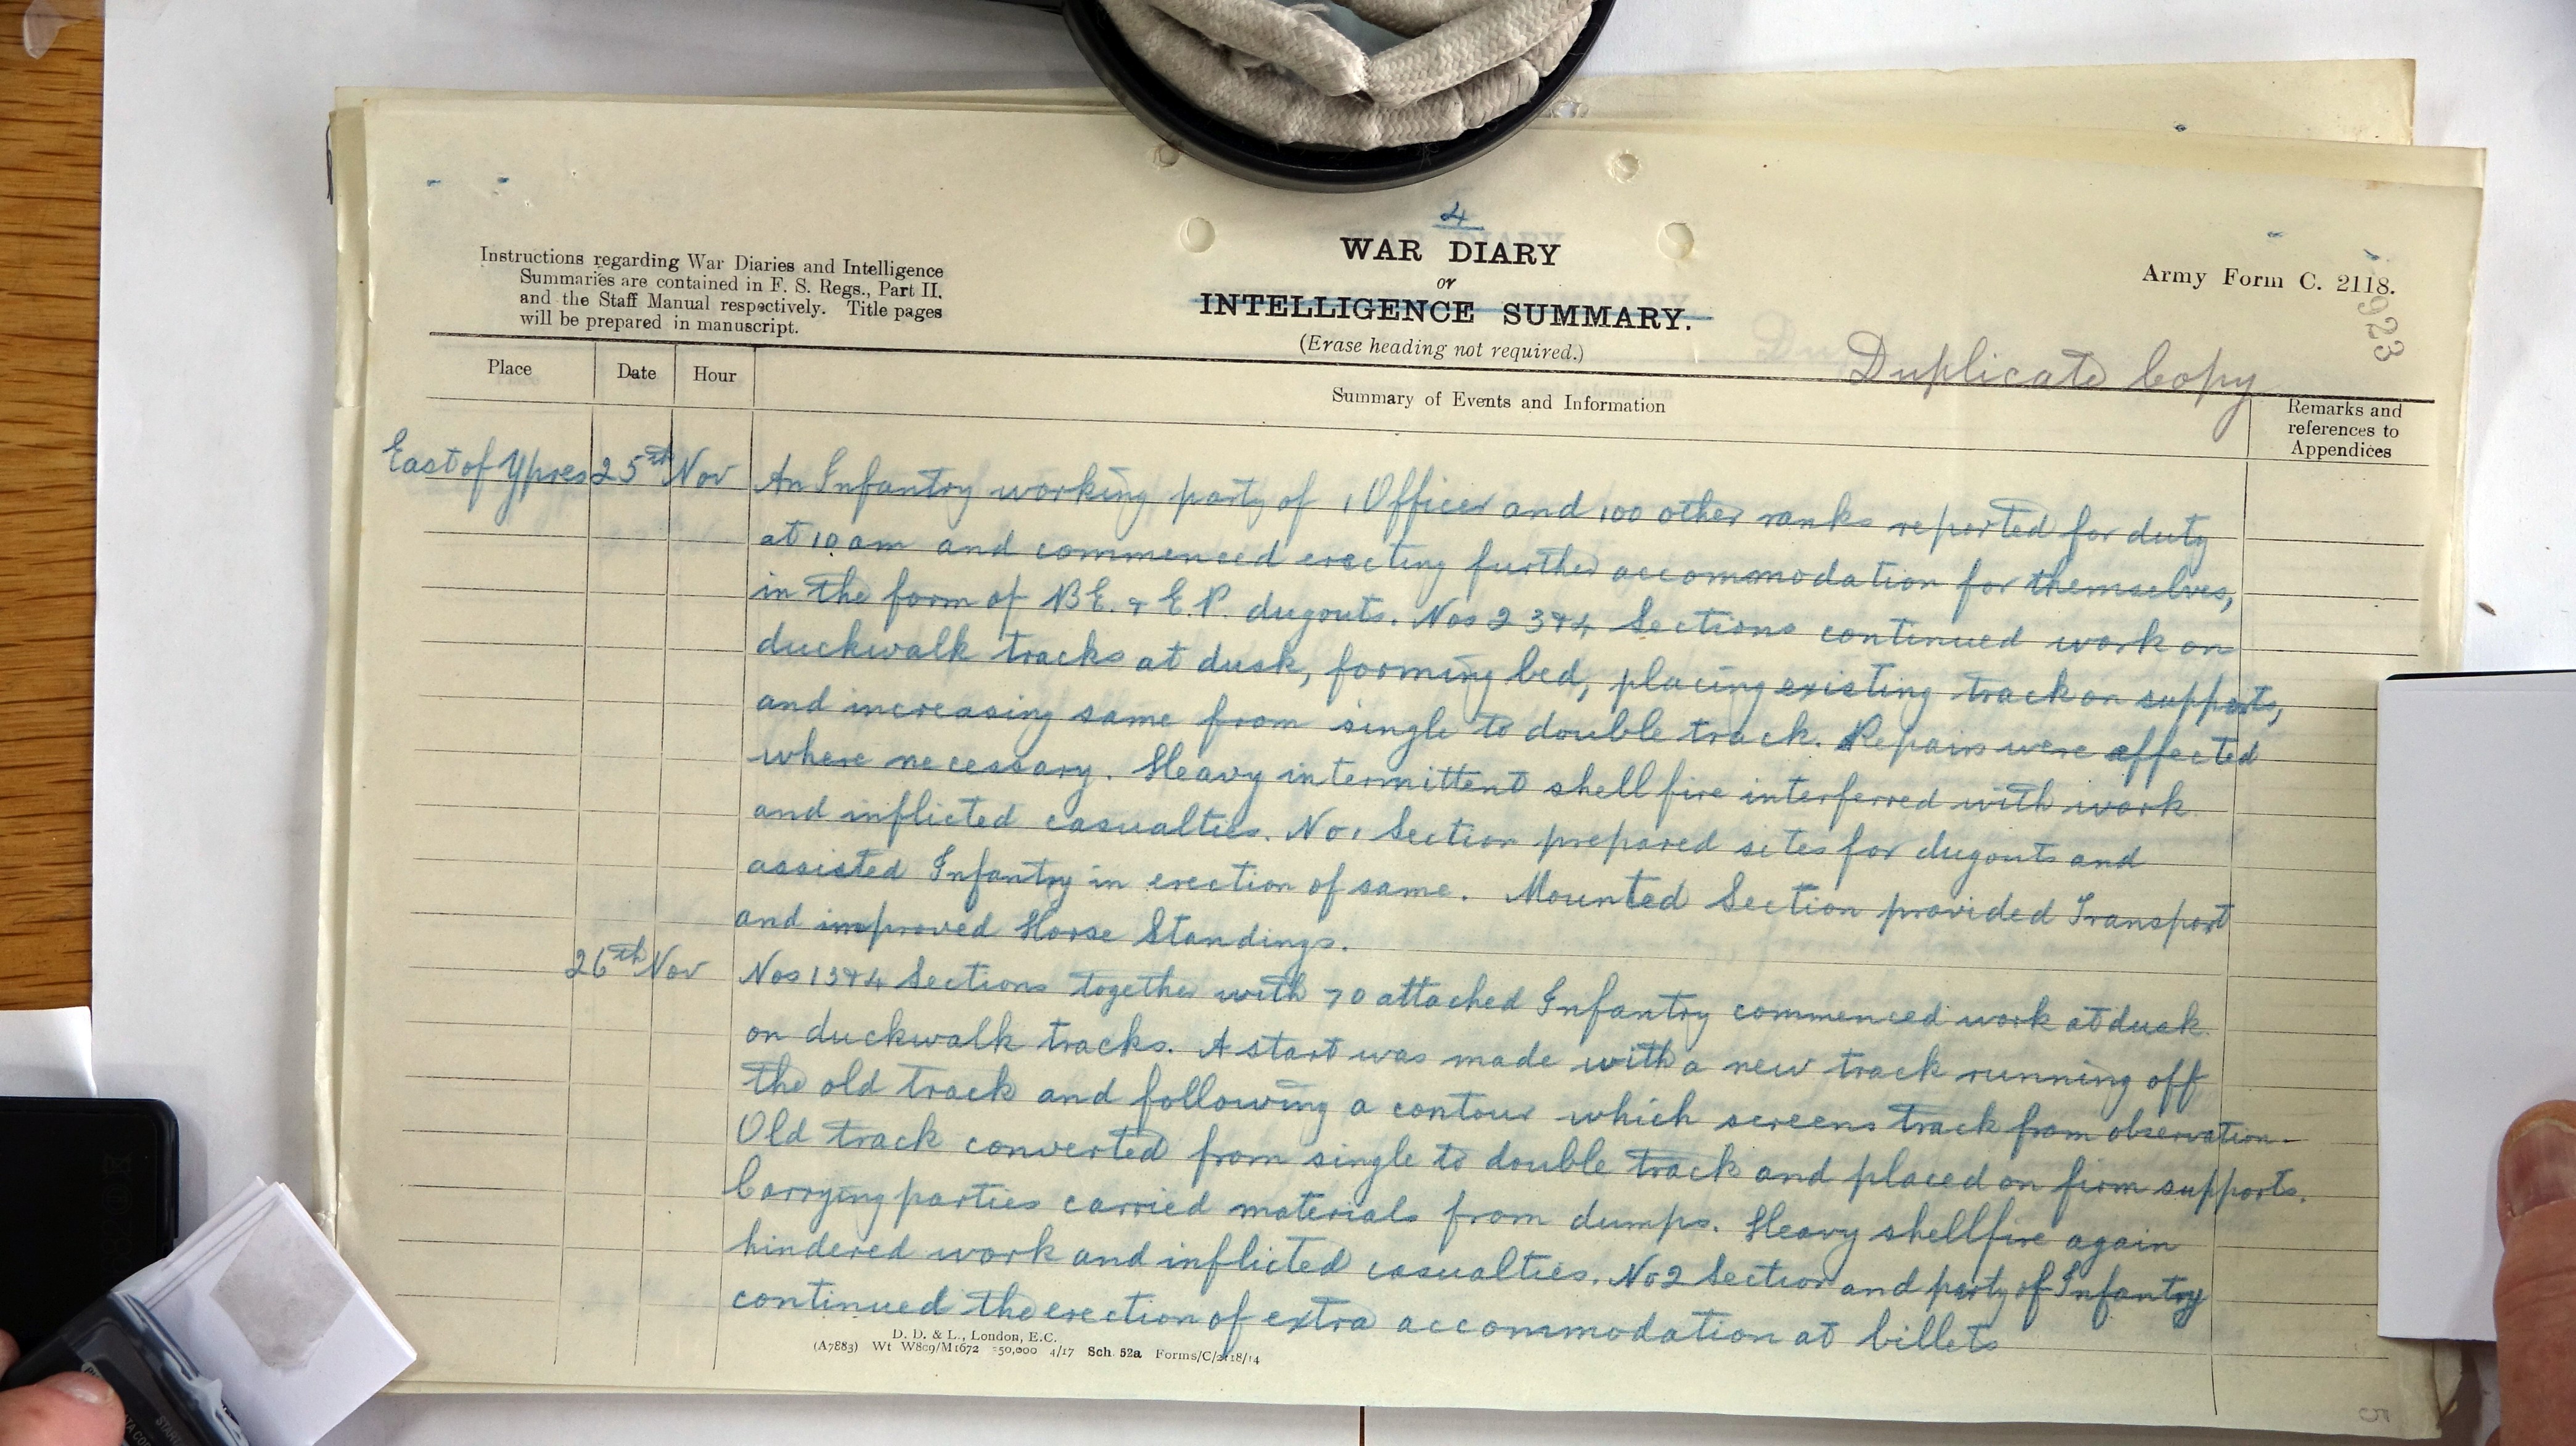 4
WAR DIARY
or
INTELLIGENCE SUMMARY.
(Erase heading not required.)
Instructions regarding War Diaries and Intelligence
Summaries are contained in F. S. Regs., Part II.
and the Staff Manual respectively. Title pages
will be prepared in manuscript.
Army Form C. 2118.
923
Duplicate Copy
Place Date Hour Summary of Events and Information Remarks and
references to
Appendices
East of Ypres 25th Nov An Infantry working party of 1 Officer and 100 other ranks reported for duty
at 10 am and commenced erecting further accommodation for themselves,
in the form of B E. & E P. dugouts. Nos 2 3 & 4 Sections continued work on
duckwalk tracks at dusk, forming bed, placing existing track on supports,
and increasing same from single to double track. Repairs were affected
where necessary. Heavy intermittent shell fire interferred with work
and inflicted casualties. No 1 Section prepared sites for dugouts and
assisted Infantry in erection of same. Mounted Section provided Transport
and improved Horse Standings.
26th Nov Nos 1 3 & 4 Sections together with 70 attached Infantry commenced work at dusk
on duckwalk tracks. A start was made with a new track running off
the old track and following a contour which screens track from observation-
Old track converted from single to double track and placed on firm supports.
Carrying parties carried materials from dumps. Heavy shellfire again
hindered work and inflicted casualties. No 2 Section and party of Infantry
continued the erection of extra accommodation at billets
D. D. & L., London, E.C.
(A7883) Wt W809/M1672 350,000 4/17 Sch. 52a Forms/C/2118/14